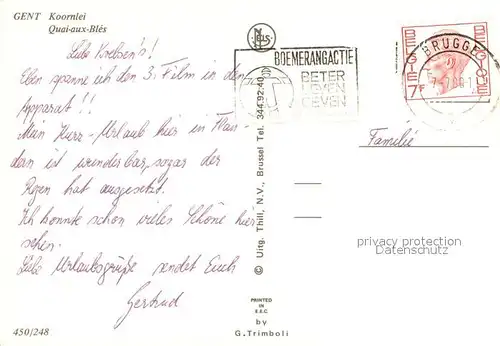 GENT Koornlei
Quai-aux-Blés
Liebe Krebsen's!
Eben spanne ich den 3. Film in den
Apparat!!
Mein Kurz-Urlaub hier in Flan-
dern ist wunderbar, sogar der
Regen hat ausgesetzt.
Ich konnte schon vieles Schöne hier
sehen.
Liebe Urlaubsgrüße sendet Euch
Gertrud
450/248
© Uitg. Thill, N.V., Brussel Tel. 344.92.40
PRINTED
IN
E.E.C
by
G. Trimboli
BOEMERANGACTIE
BETER
GEVEN
BELGIE 7F BELGIQUE
BRUGGE
Familie
privacy protection
Datenschutz